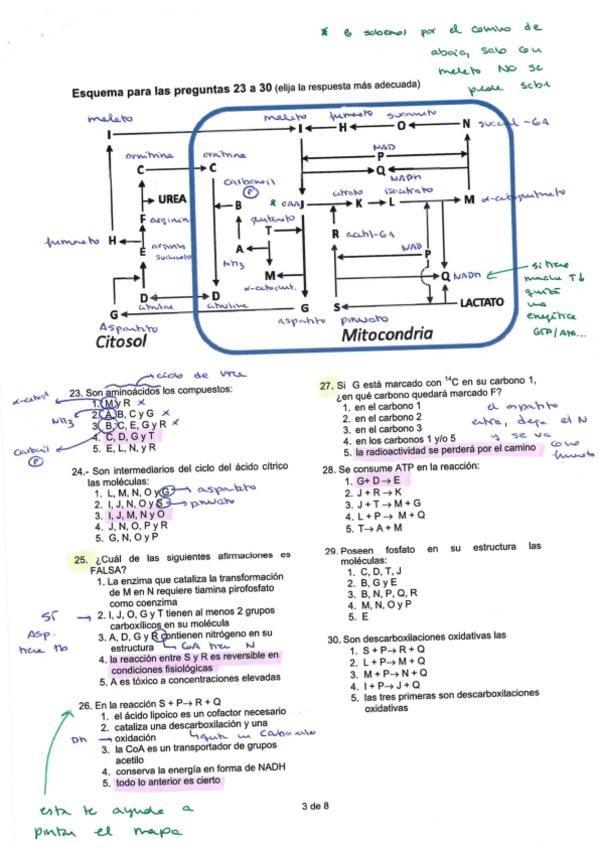 * lo sabemos por el camino de
abajo, solo con
malato NO se
puede saber
Esquema para las preguntas 23 a 30 (elija la respuesta más adecuada)
malato
malato fumarato succinato
I I H O N succinil-CoA
NAD
P
Q
NADH
ornitina ornitina
C C
carbamil
P
UREA
B
OAA J
citrato isocitrato
K L M α-cetoglutarato
F arginina
T glutamato
R acetil-CoA
fumarato H
E arginino
succinato
A
NH3
M
α-cetoglut.
NAD
P
J
Q NADH
D D
citrulina citrulina
G G S LACTATO
Aspartato aspartato piruvato
si tiene
mucha ↑↓
quizá
una
energética
GTP/ATP...
Citosol Mitocondria
ciclo de urea
23. Son aminoácidos los compuestos:
α-cetogl
1. M y R x
NH3
2. A, B, C y G x
3. B, C, E, G y R x
Carbamil
P
4. C, D, G y T
5. E, L, N, y R
24.- Son intermediarios del ciclo del ácido cítrico
las moléculas:
1. L, M, N, O y G → aspartato
2. I, J, N, O y S → piruvato
3. I, J, M, N y O
4. J, N, O, P y R
5. G, N, O y P
25. ¿Cuál de las siguientes afirmaciones es
FALSA?
1. La enzima que cataliza la transformación
de M en N requiere tiamina pirofosfato
como coenzima
SÍ → 2. I, J, O, G y T tienen al menos 2 grupos
carboxílicos en su molécula
Asp.
tiene no
3. A, D, G y R contienen nitrógeno en su
estructura → CoA tiene N
4. la reacción entre S y R es reversible en
condiciones fisiológicas
5. A es tóxico a concentraciones elevadas
26. En la reacción S + P→ R + Q
1. el ácido lipoico es un cofactor necesario
2. cataliza una descarboxilación y una
DH → oxidación → quita un carbono
3. la CoA es un transportador de grupos
acetilo
4. conserva la energía en forma de NADH
5. todo lo anterior es cierto
esta te ayuda a
pintar el mapa
27. Si G está marcado con 14C en su carbono 1,
¿en qué carbono quedará marcado F?
1. en el carbono 1
2. en el carbono 2
3. en el carbono 3
4. en los carbonos 1 y/o 5
5. la radioactividad se perderá por el camino
el aspartato
entra, deja el N
y se va
como
fumarato
28. Se consume ATP en la reacción:
1. G+ D→ E
2. J + R→ K
3. J + T→ M + G
4. L + P→ M + Q
5. T→ A + M
29. Poseen fosfato en su estructura las
moléculas:
1. C, D, T, J
2. B, G y E
3. B, N, P, Q, R
4. M, N, O y P
5. E
30. Son descarboxilaciones oxidativas las
1. S + P→ R + Q
2. L + P→ M + Q
3. M + P→ N + Q
4. I + P→ J + Q
5. las tres primeras son descarboxilaciones
oxidativas
3 de 8